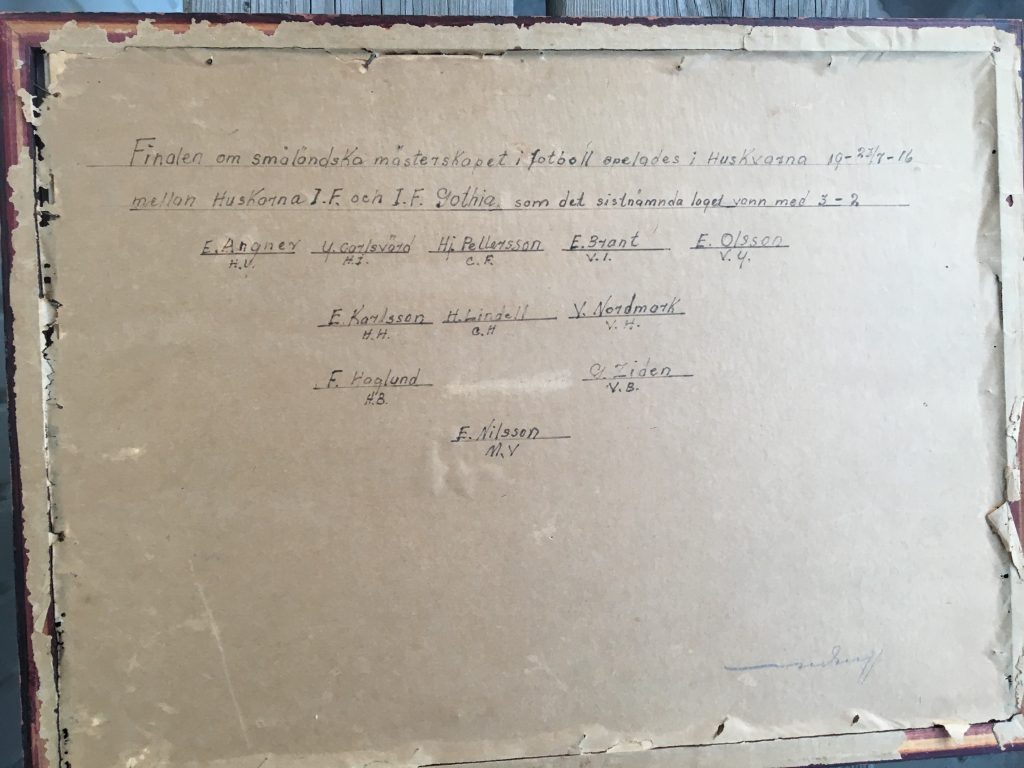 Finalen om småländska mästerskapet i fotboll spelades i Huskvarna 19-23/7-16
mellan Huskvarna I.F. och I.F. Gothia, som det sistnämnda laget vann med 3-2
E. Angner Y. Carlsvärd Hj. Pettersson E. Brant E. Olsson
H.Y. H.I. C.F. V.I. V.Y.
E. Karlsson H. Lindell V. Nordmark
H.H. C.H V.H.
F. Haglund G. Ziden
H.B. V.B.
E. Nilsson
M.V